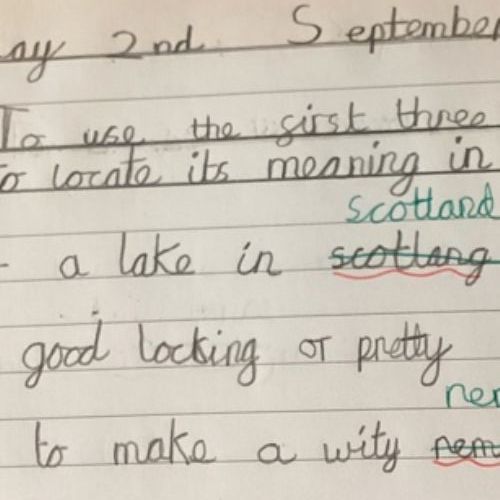 ay 2nd September
To use the first three
o locate its meaning in
scotland
- a lake in scotlang
good locking or pretty
to make a wity